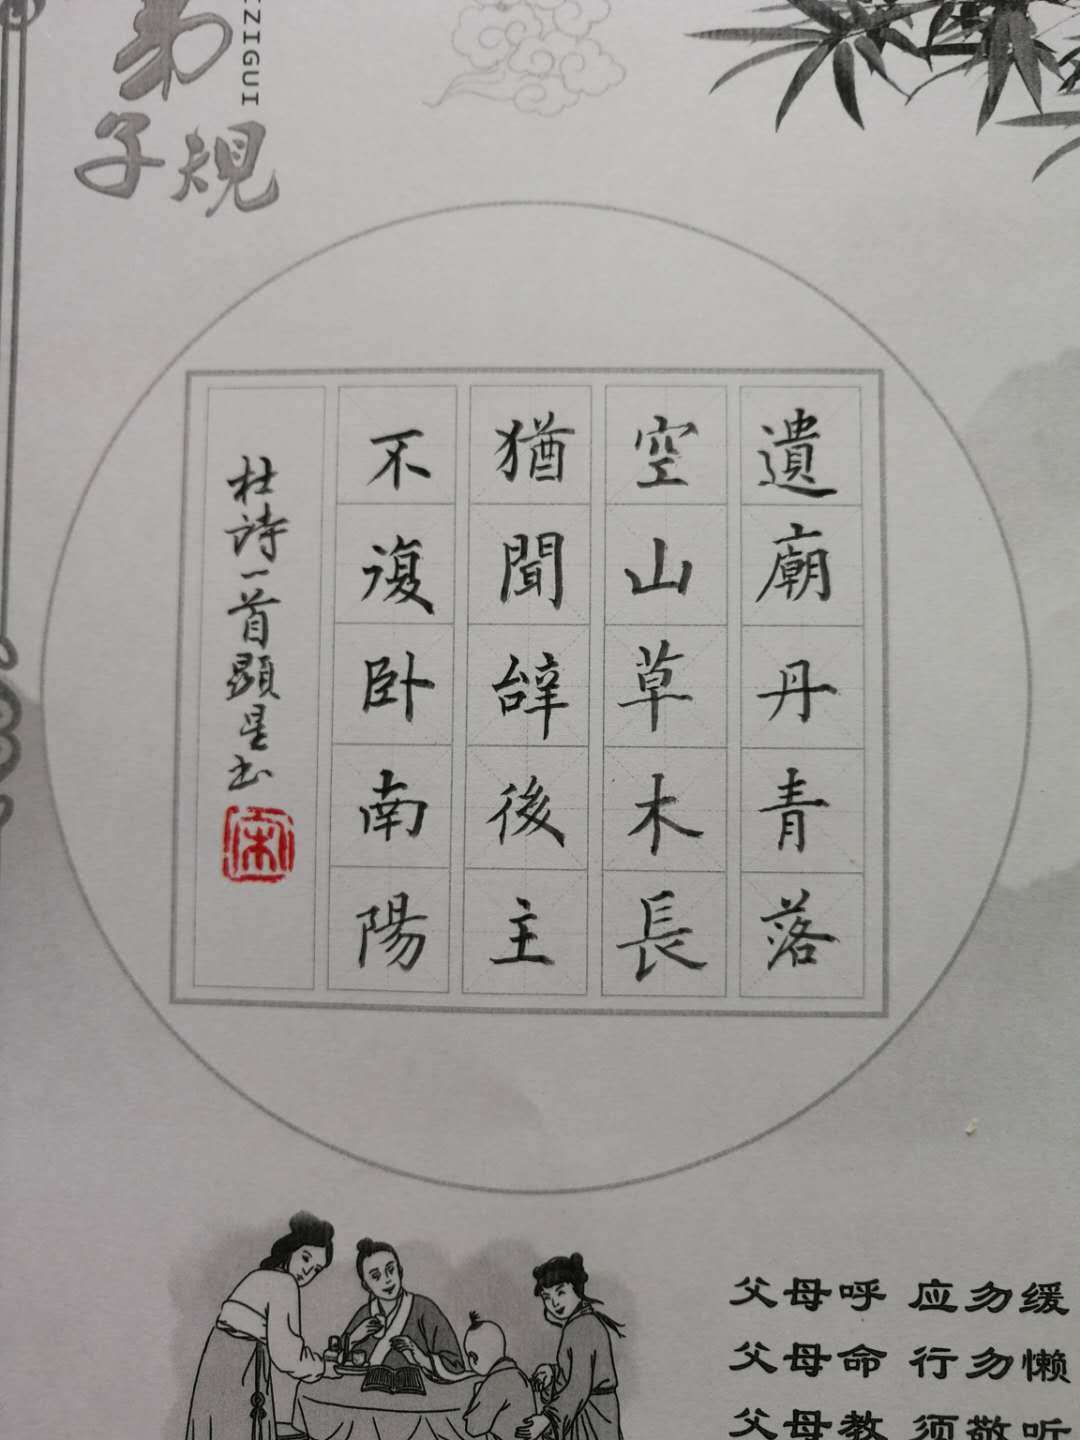 弟
子规
ZIGUI
遺廟丹青落
空山草木長
猶聞辭後主
不復卧南陽
杜诗一首顕星书
宋
父母呼 应勿缓
父母命 行勿懒
父母教 须敬听